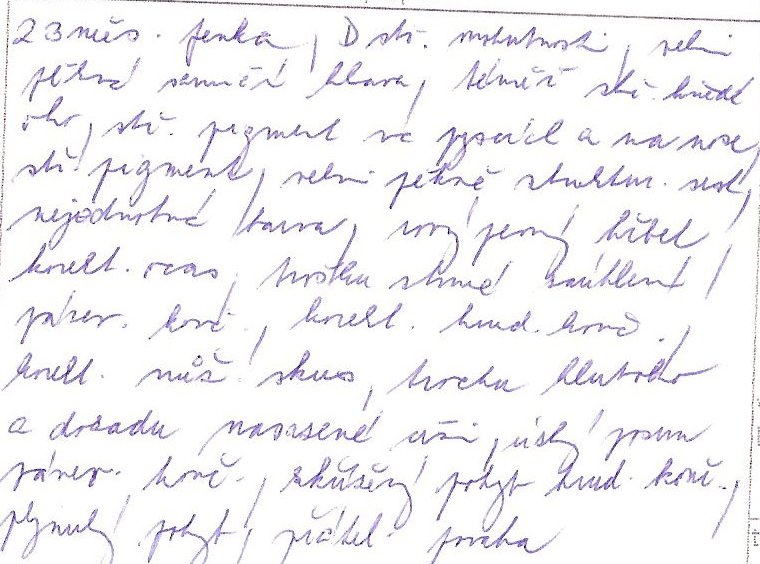 23 měs. fenka, D stř. mohutnosti, velmi
pěkná samičí hlava, téměř stř. hnědé
oko, stř. pigment na a na nose,
stř. pigment, velmi pěkně struktur. srst,
nejednotná barva, rovný pevný hřbet,
korekt. ocas, trošku strmé zaúhlení
pánev. konč., korekt. hrud. konč.,
korekt. nůž. skus, trochu hluboko
a dozadu nasazené uši, úzký posun
pánev. konč., zkřížený pohyb hrud. konč.,
plynulý pohyb, přátel. povaha